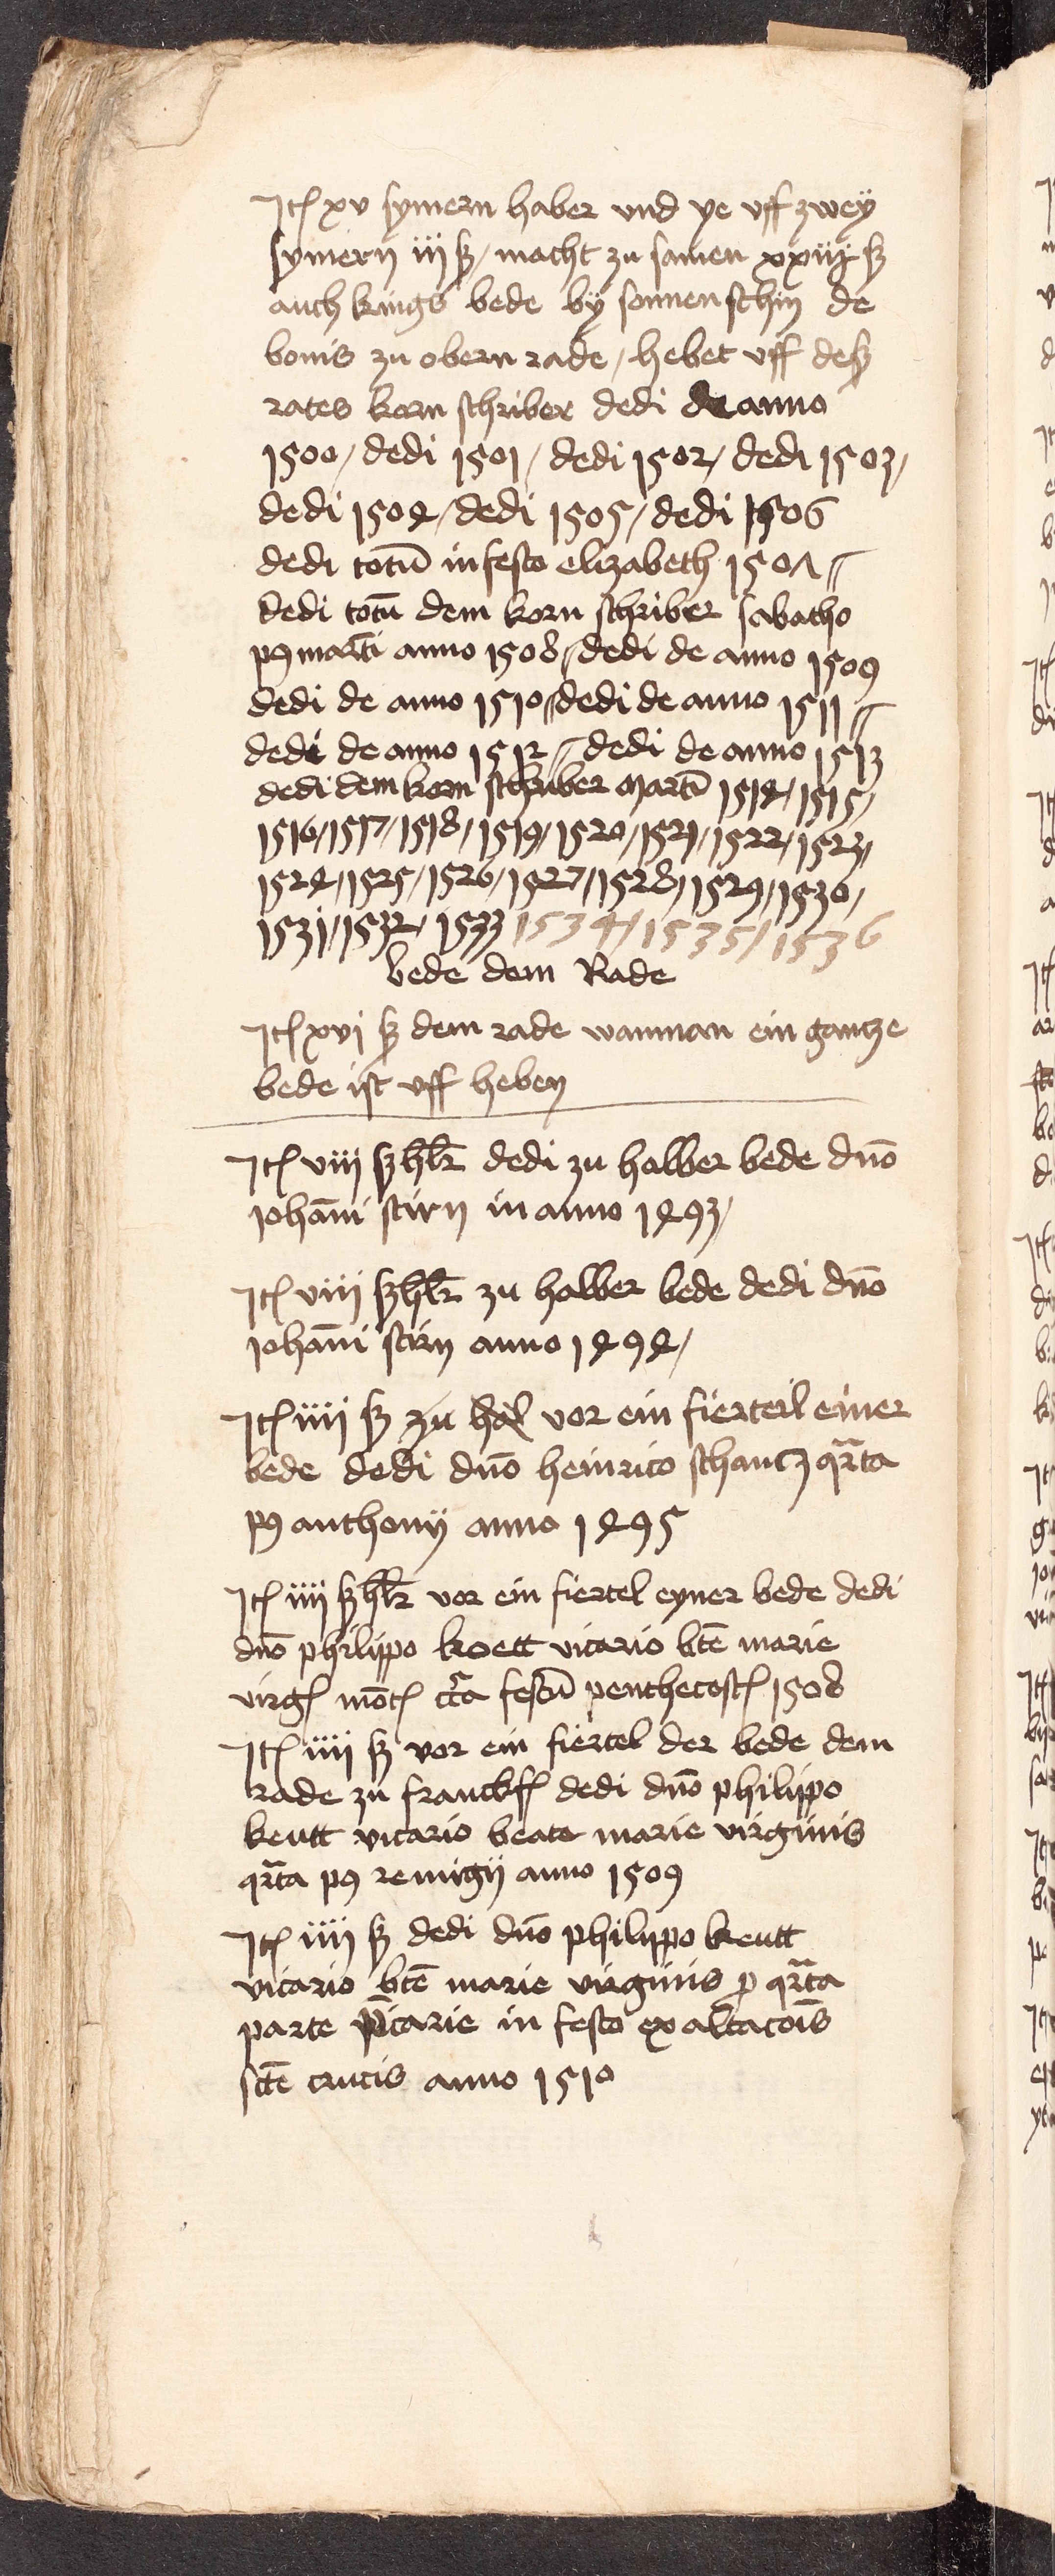 Jt(em) xv symern haber vnd ye vff zwey
symern iij ß / macht zu samen xxiij ß
auch kungs bede by sonnen schin de
bonis zu obern rade / hebet vff deß
rates korn schriber dedi de anno
1500 / dedi 1501 / dedi 1502 / dedi 1503 /
dedi 1504 / dedi 1505 / dedi 1506
dedi totu̅ in festo elizabeth 1507 //
dedi totu̅ dem korn schriber sabatho
p9 marti̅ anno 1508 // dedi de anno 1509
dedi de anno 1510 // dedi de anno 1511 //
dedi de anno 1512 // dedi de anno 1513
dedi dem korn schriber marti̅ 1514 / 1515 /
1516 / 1517 / 1518 / 1519 / 1520 / 1521 / 1522 / 1523 /
1524 / 1525 / 1526 / 1527 / 1528 / 1529 / 1530 /
1531 / 1532 / 1533 1534 / 1535 / 1536
bede dem Rade
Jt(em) xvj ß dem rade wanman ein gantze
bede ist vff heben
Jt(em) viij ß hlr̅ dedi zu halber bede dn̅o
joha̅ni stirn in anno 1493 /
Jt(em) viij ß hlr̅ zu halber bede dedi dn̅o
joha̅ni stirn anno 1494 /
Jt(em) iiij ß zu hal vor ein fierteil einer
bede dedi dn̅o heinrico schantz qr̅ta
p9 anthony anno 1495
Jt(em) iiij ß hlr̅ vor ein fiertel eyner bede dedi
dn̅o philippo koett vicario bte̅ marie
virg(inis) mo̅t(is) cc̅a festu̅ penthecost(es) 1508
Jt(em) iiij ß vor ein fiertel der bede dem
rade zu franckf(urt) dedi dn̅o philippo
keutt vicario beate marie virginis
qr̅ta p9 remigij anno 1509
Jt(em) iiij ß dedi dn̅o philippo keutt
vicario bte̅ marie virginis p qr̅ta
parte p̅carie in festo exaltaco̅is
scte̅ crucis anno 1510